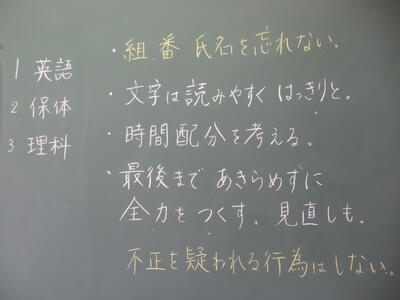 1 英語
2 保体
3 理科
・組.番 氏名を忘れない.
・文字は読みやすく はっきりと。
・時間配分を考える。
・最後まで あきらめずに
全力をつくす。見直しも.
不正を疑われる行為はしない。